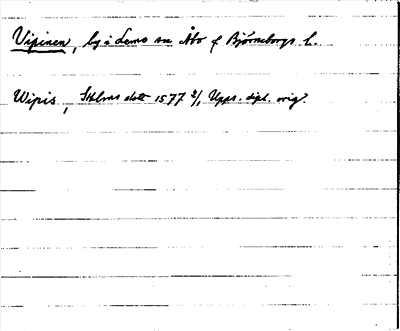 Vipinen, by i Lemo sn Åbo o Björneborgs l.
Wipis, Sthlms slott 1577 2/1 Upps. dipl. orig.